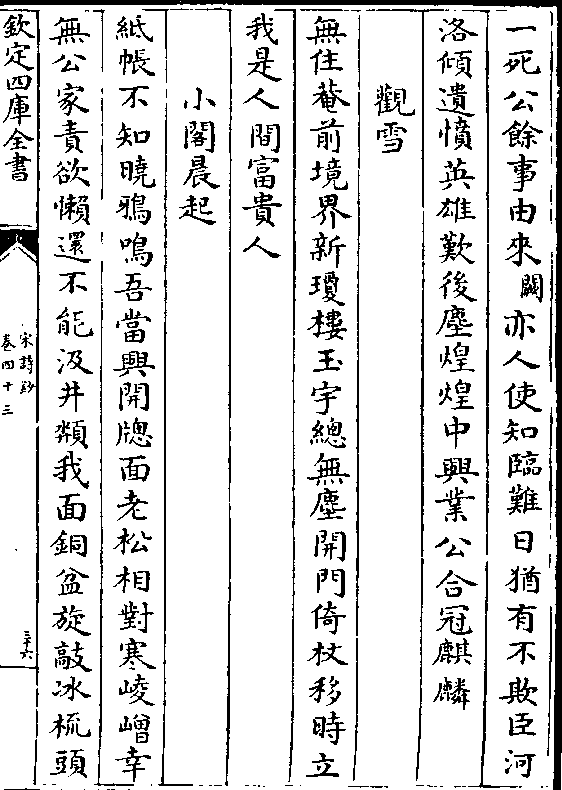 一死公餘事由來闕亦人使知臨難日猶有不欺臣河
洛傾遺憤英雄歎後塵煌煌中興業公合冠麒麟
觀雪
無住菴前境界新瓊樓玉宇總無塵開門倚杖移時立
我是人間富貴人
小閣晨起
紙帳不知曉鴉鳴吾當興開牕面老松相對寒崚嶒幸
無公家責欲懶還不能汲井頮我面銅盆旋敲冰梳頭
欽定四庫全書
宋詩鈔
卷四十三
三十六